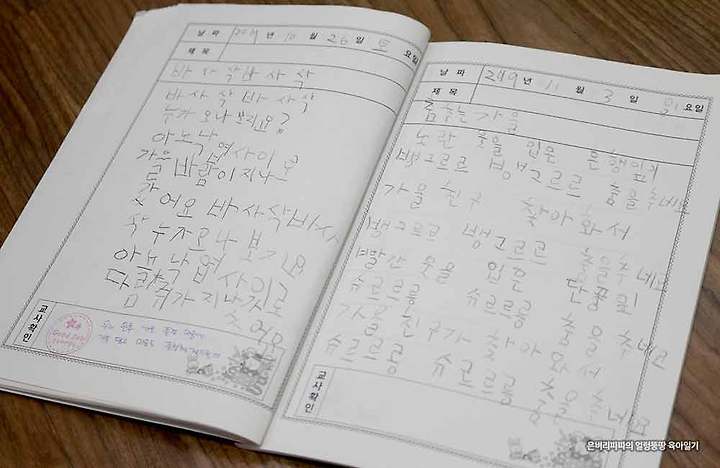 날짜 2019 년 10 월 26 일 토 요일
제목
바사삭바사삭
바사삭바사삭
누가 오나 보려요?
아 노낙엽사이로
가을 바람이 지나
갓어요 바사삭바사
삭 누자르나 보기요
아 낙엽 사이로
다람쥐가 지나
갓어요
교사확인
날짜 2019 년 11 월 3 일 일 요일
제목
춤추는가을
노란 옷을 입은 은행잎
뱅그르르 뱅그르르 춤을추네요
가을 친구 찾아와서
뱅그르르 뱅그르르 춤을추네요
빨간 옷을 입은
슈르르를 슈르르를 춤을추네요
가을 친구가 찾아와서
슈르르르 슈르르를 춤을추네요
교사확인
은버리파파의 얼렁뚱땅 육아일기